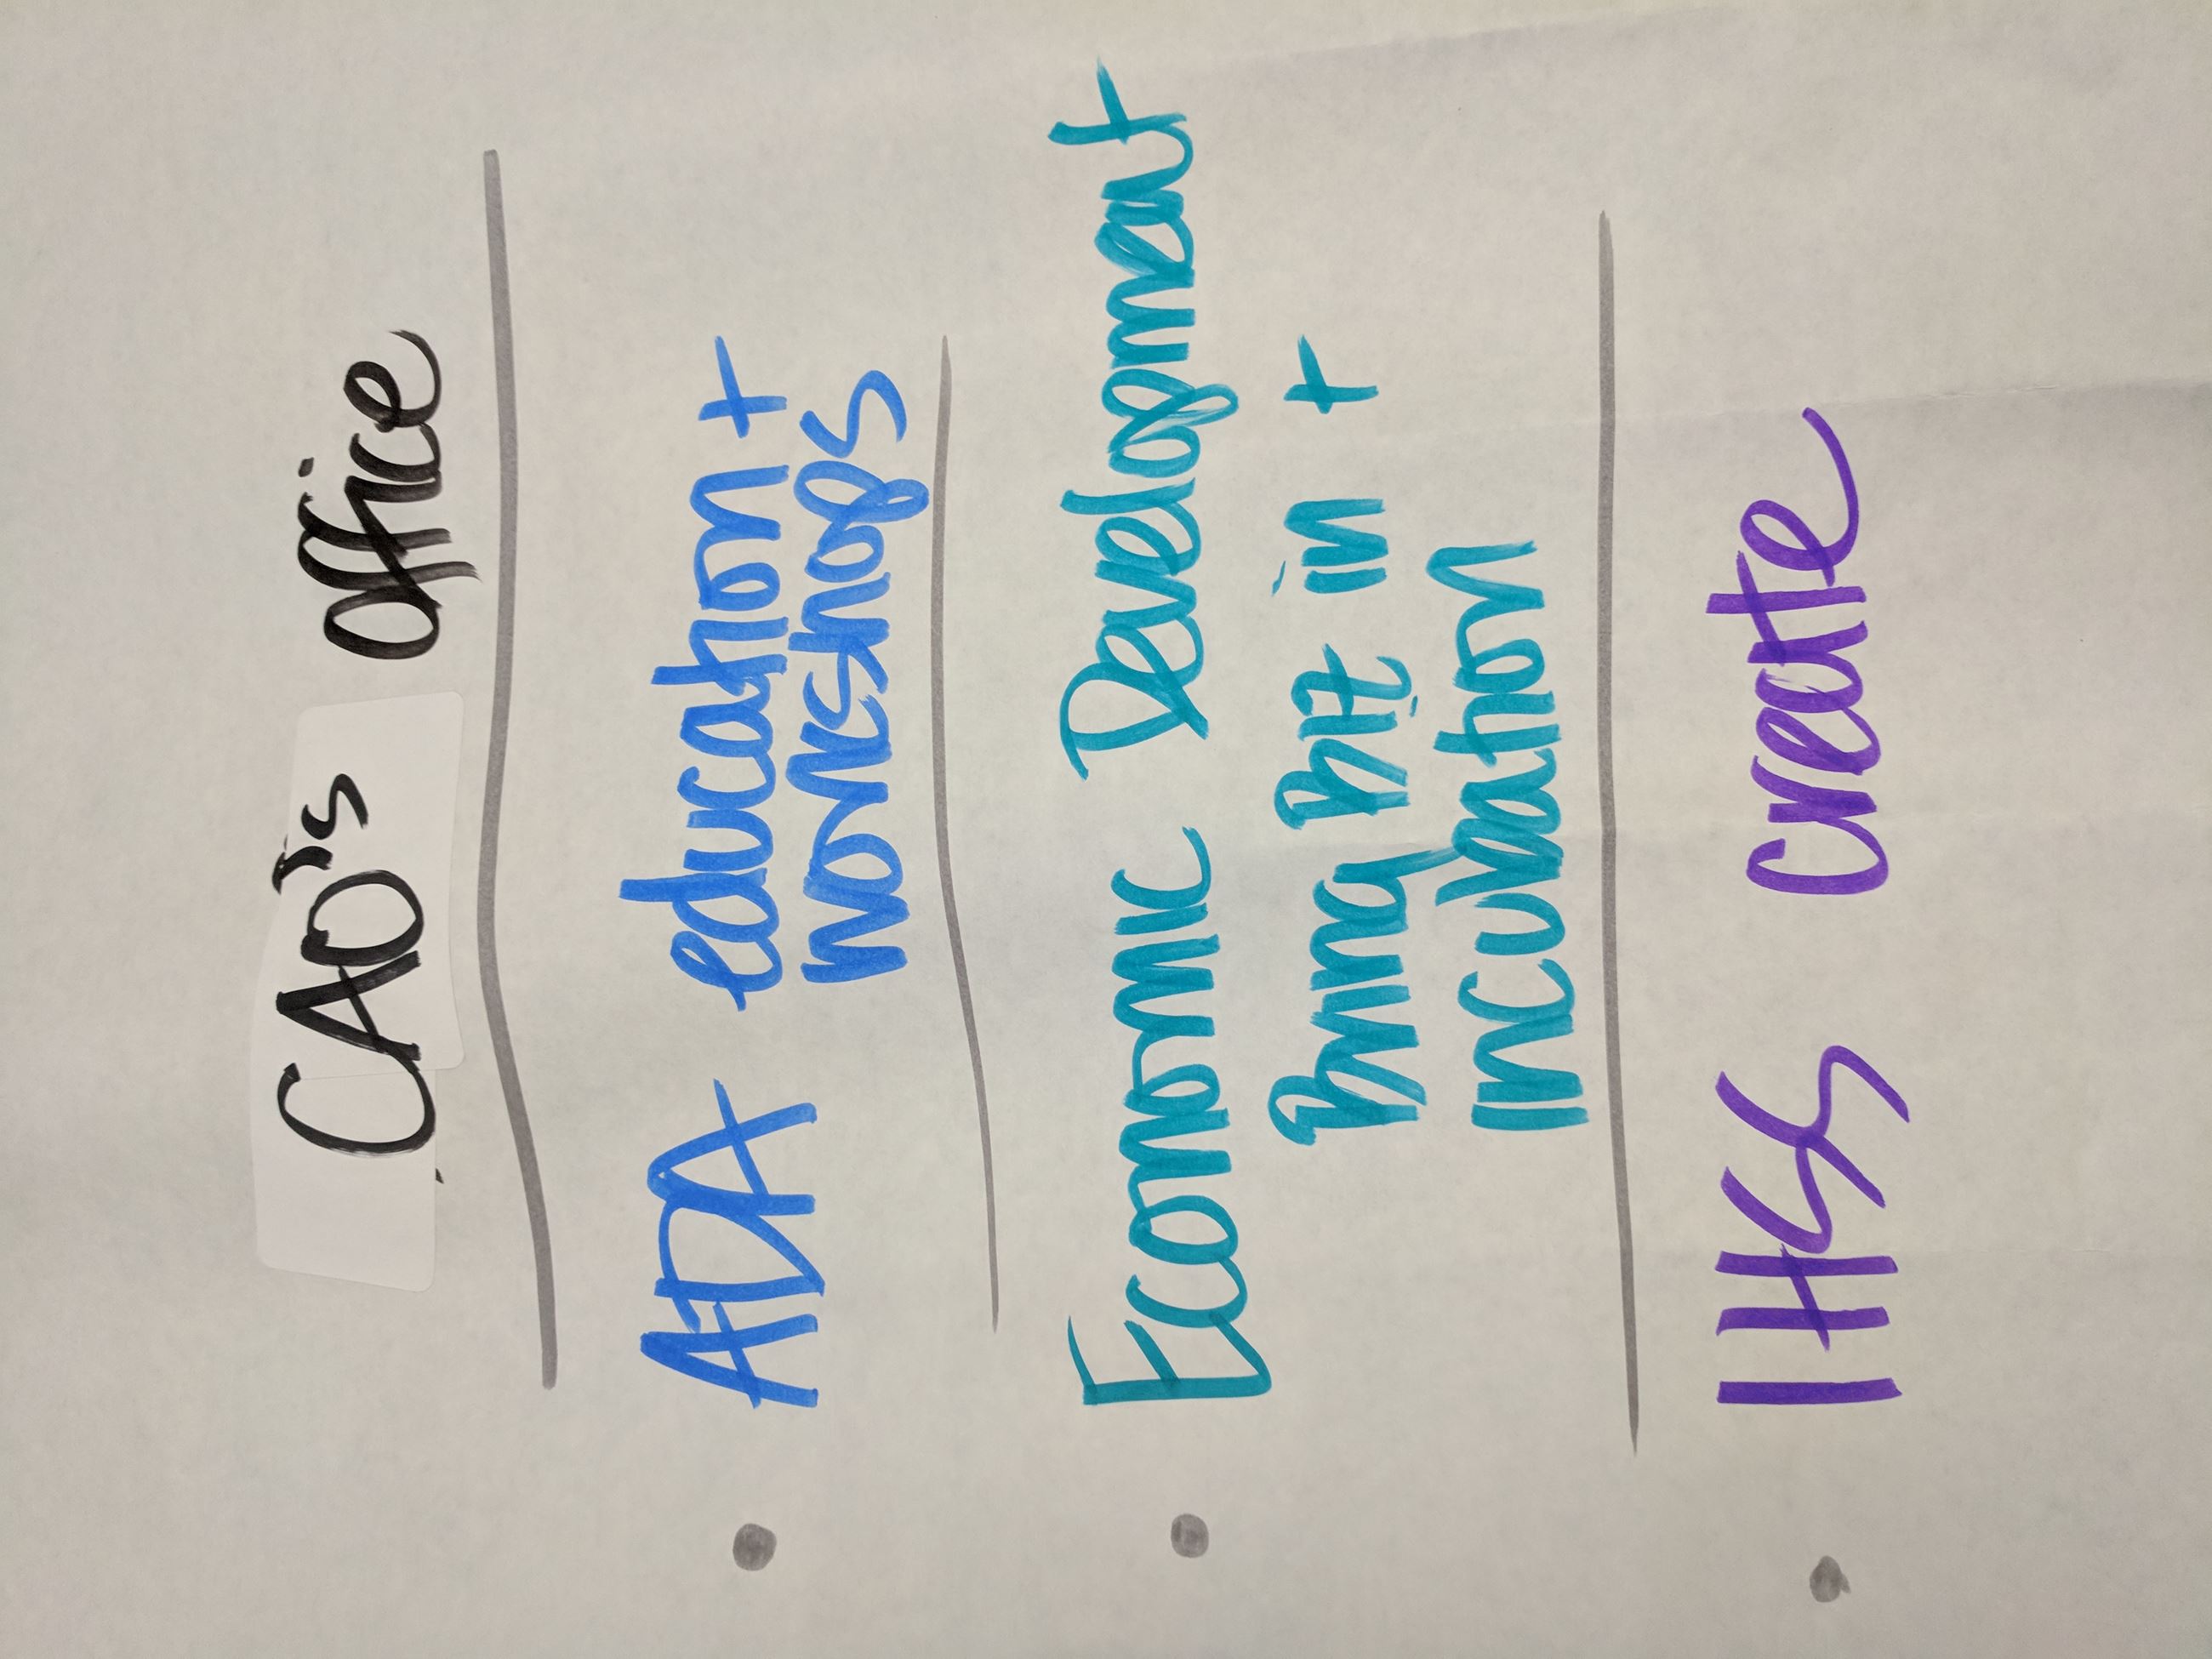 CAO's office
ADA education +
workshops
Economic Development
Bring Biz in +
incubation
IHSS create